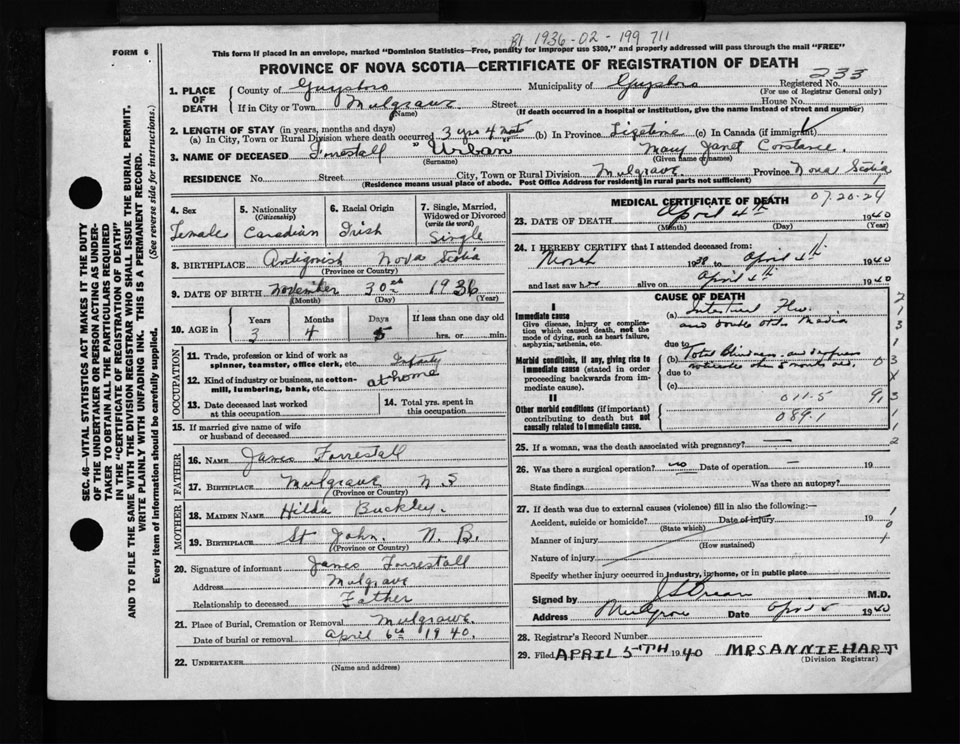 B1 1936-02-199711
FORM 6
This form if placed in an envelope, marked "Dominion Statistics—Free, penalty for improper use $300," and properly addressed will pass through the mail "FREE"
PROVINCE OF NOVA SCOTIA—CERTIFICATE OF REGISTRATION OF DEATH
233
1. PLACE OF DEATH
County of Guysboro Municipality of Guysboro Registered No.
(For use of Registrar General only)
If in City or Town Mulgrave Street House No.
(Name) (If death occurred in a hospital or institution, give the name instead of street and number)
2. LENGTH OF STAY (in years, months and days)
(a) In City, Town or Rural Division where death occurred 3 yrs 4 mots (b) In Province Lifetime (c) In Canada (if immigrant)
3. NAME OF DECEASED Forrestall "Urban Mary Janet Constance.
(Surname) (Given name or names)
RESIDENCE No. Street City, Town or Rural Division Mulgrave. Province Nova Scotia
(Residence means usual place of abode. Post Office Address for residents in rural parts not sufficient)
4. Sex Female
5. Nationality (Citizenship) Canadian
6. Racial Origin Irish
7. Single, Married, Widowed or Divorced (write the word) Single
8. BIRTHPLACE Antigonish Nova Scotia
(Province or Country)
9. DATE OF BIRTH November 30th 1936
(Month) (Day) (Year)
10. AGE in Years Months Days If less than one day old
3 4 5 hrs. or min.
OCCUPATION
11. Trade, profession or kind of work as spinner, teamster, office clerk, etc.
12. Kind of industry or business, as cotton-mill, lumbering, bank, etc. at home
13. Date deceased last worked at this occupation
14. Total yrs. spent in this occupation
15. If married give name of wife or husband of deceased
FATHER
16. NAME James Forrestall
17. BIRTHPLACE Mulgrave N S
(Province or Country)
MOTHER
18. MAIDEN NAME Hilda Buckley.
19. BIRTHPLACE St John. N. B.
(Province or Country)
20. Signature of informant James Forrestall
Address Mulgrave
Relationship to deceased Father
21. Place of Burial, Cremation or Removal Mulgrave
Date of burial or removal April 6th 1940.
22. UNDERTAKER
(Name and address)
MEDICAL CERTIFICATE OF DEATH 07.20.24
23. DATE OF DEATH April 4th 1940
(Month) (Day) (Year)
24. I HEREBY CERTIFY that I attended deceased from:
1938 to April 4th 1940
and last saw her alive on April 4th 1940
CAUSE OF DEATH
I
Immediate cause
Give disease, injury or complication which caused death, not the mode of dying, such as heart failure, asphyxia, asthenia, etc.
(a) Intestinal Flu.
and double otitis Media
due to
Morbid conditions, if any, giving rise to immediate cause (stated in order proceeding backwards from immediate cause).
(b) Total blindness and deafness
due to
(c)
II
Other morbid conditions (if important) contributing to death but not causally related to immediate cause.
011.5
089.1
25. If a woman, was the death associated with pregnancy?
26. Was there a surgical operation? no Date of operation 19
State findings Was there an autopsy?
27. If death was due to external causes (violence) fill in also the following:—
Accident, suicide or homicide? Date of injury 19
(State which)
Manner of injury
(How sustained)
Nature of injury
Specify whether injury occurred in industry, in home, or in public place
Signed by M.D.
Address Mulgrave Date April 5 1940
28. Registrar's Record Number
29. Filed APRIL 5TH 1940 MRS ANNIE HART
(Division Registrar)
SEC. 46—VITAL STATISTICS ACT MAKES IT THE DUTY
OF THE UNDERTAKER OR PERSON ACTING AS UNDER-
TAKER TO OBTAIN ALL THE PARTICULARS REQUIRED
IN THE "CERTIFICATE OF REGISTRATION OF DEATH"
AND TO FILE THE SAME WITH THE DIVISION REGISTRAR WHO SHALL ISSUE THE BURIAL PERMIT.
WRITE PLAINLY WITH UNFADING INK. THIS IS A PERMANENT RECORD.
Every item of information should be carefully supplied. (See reverse side for instructions.)